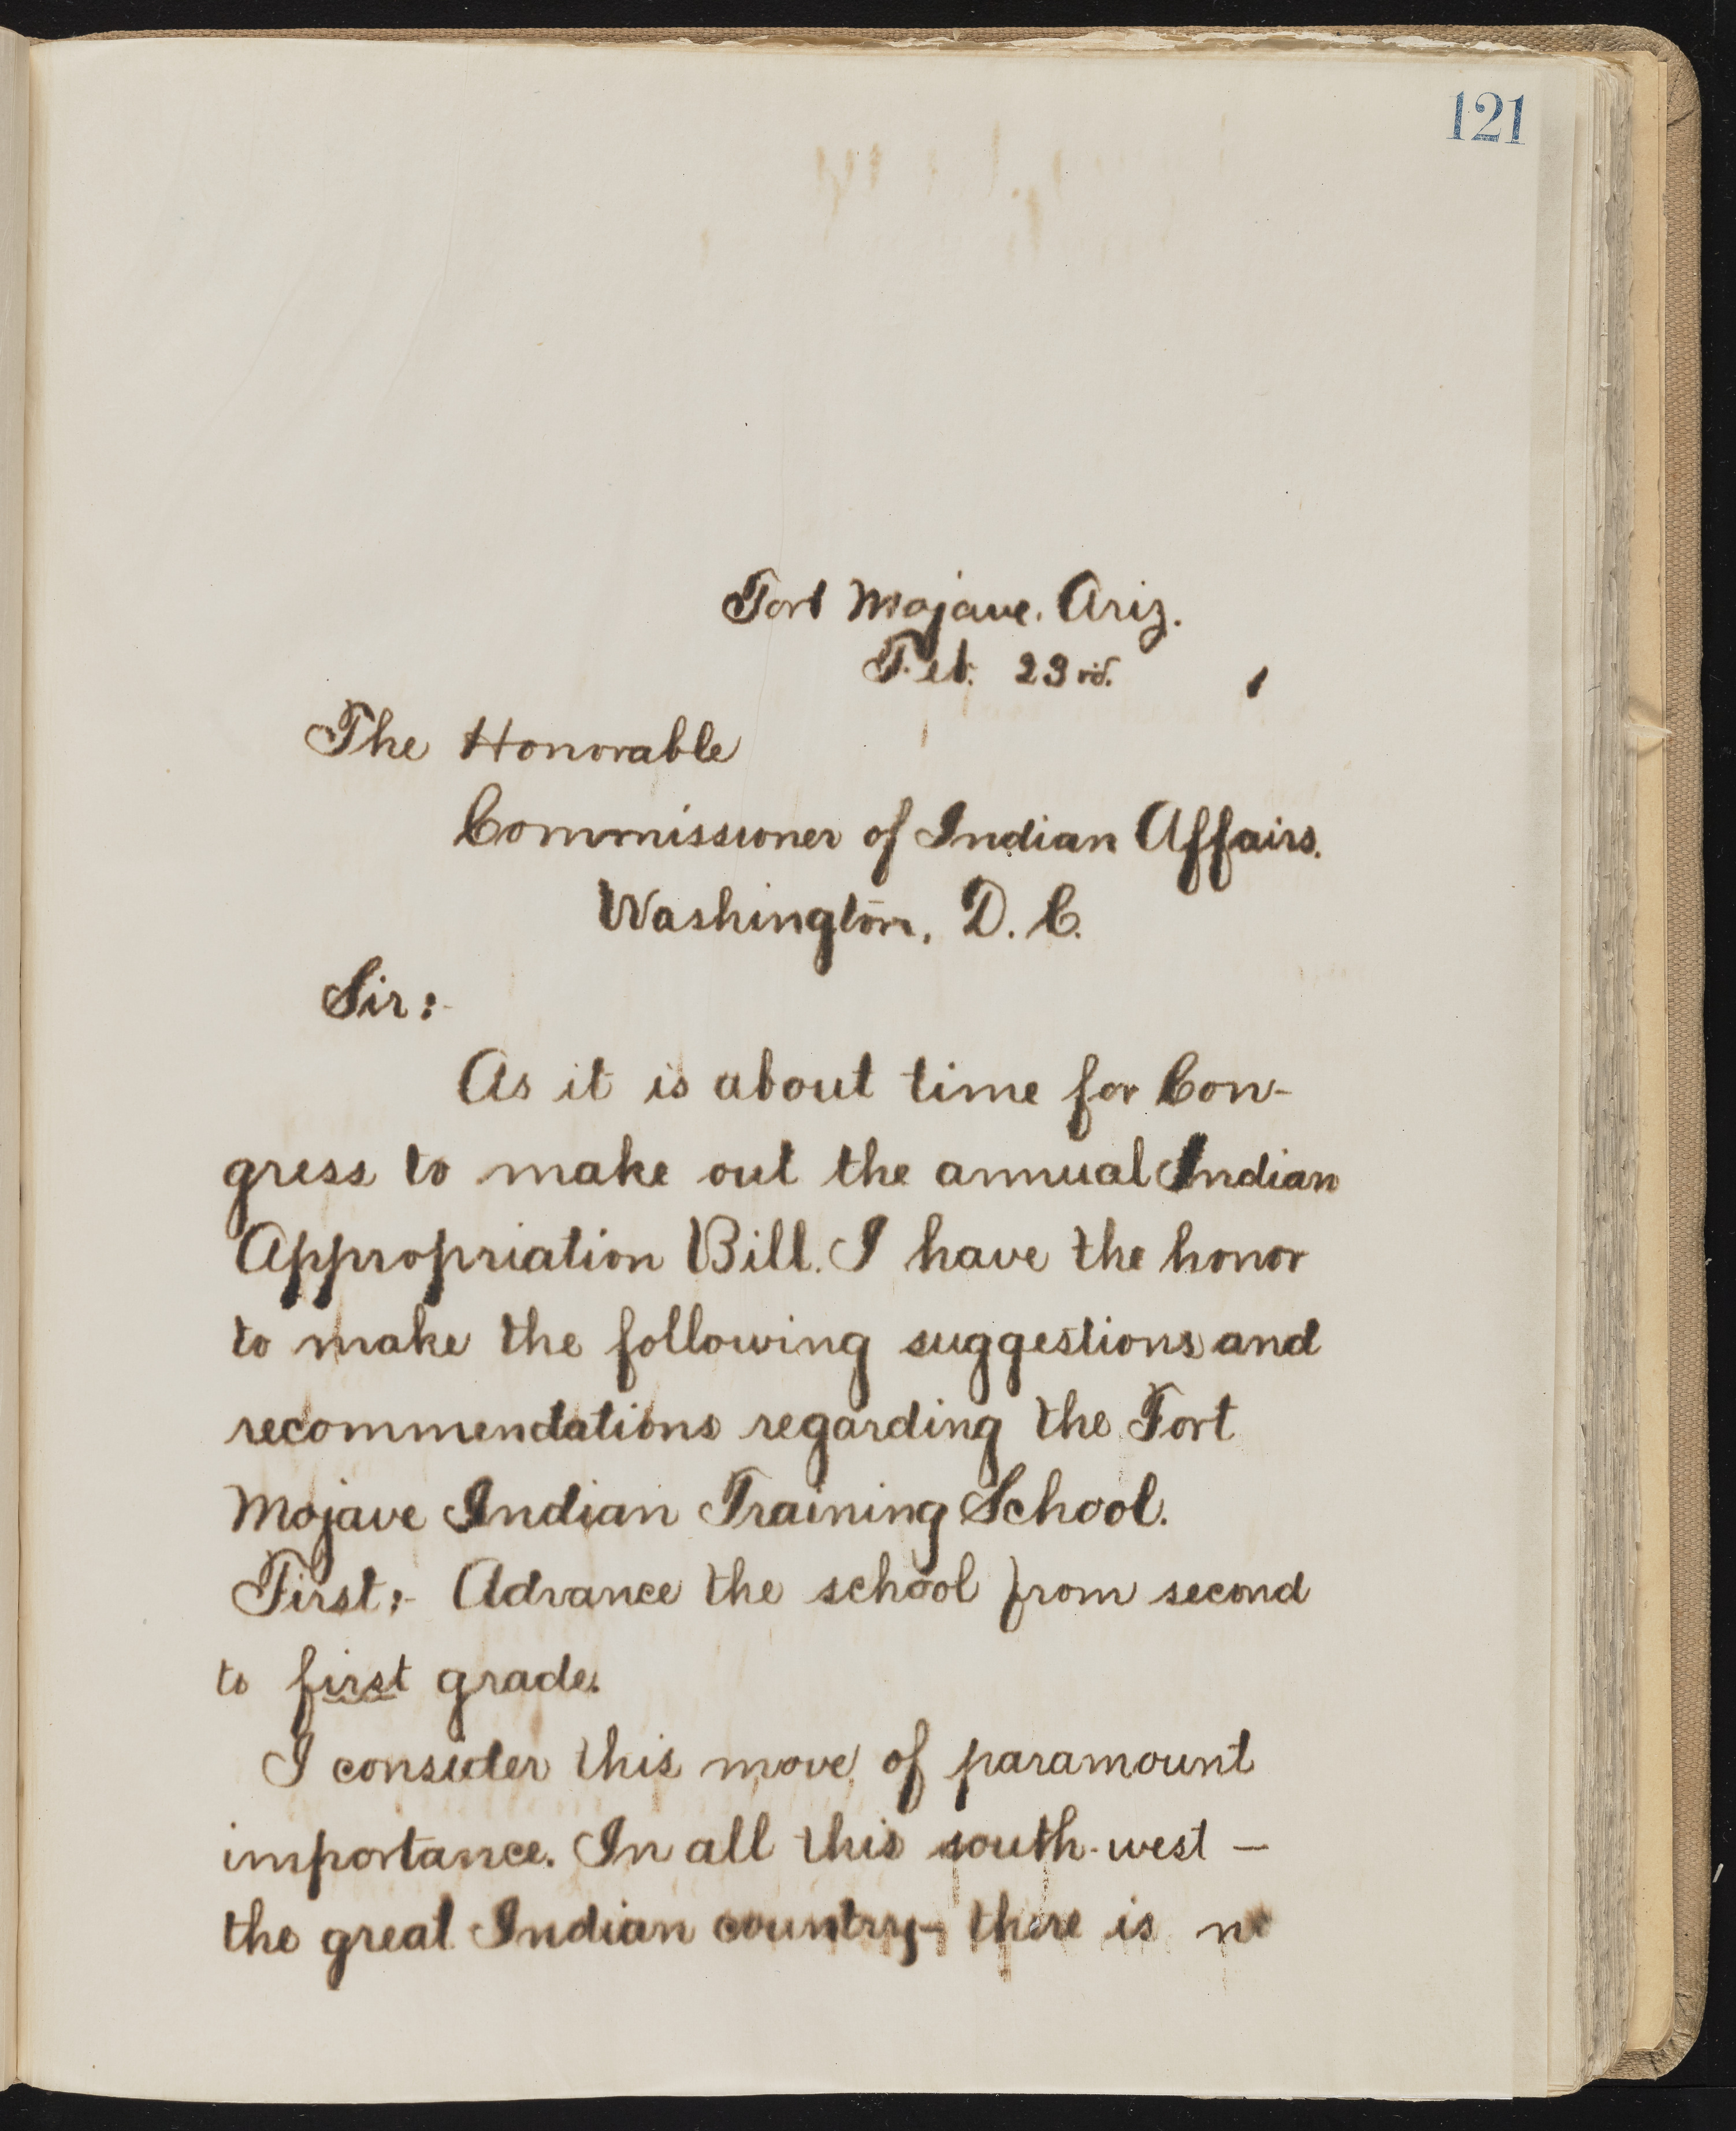 121
Fort Mojave. Ariz.
Feb. 23rd.
The Honorable
Commissioner of Indian Affairs.
Washington, D. C.
Sir:-
As it is about time for Con-
gress to make out the annual Indian
Appropriation Bill. I have the honor
to make the following suggestions and
recommendations regarding the Fort
Mojave Indian Training School.
First:- Advance the school from second
to first grade.
I consider this move of paramount
importance. In all this south-west —
the great Indian country- there is no